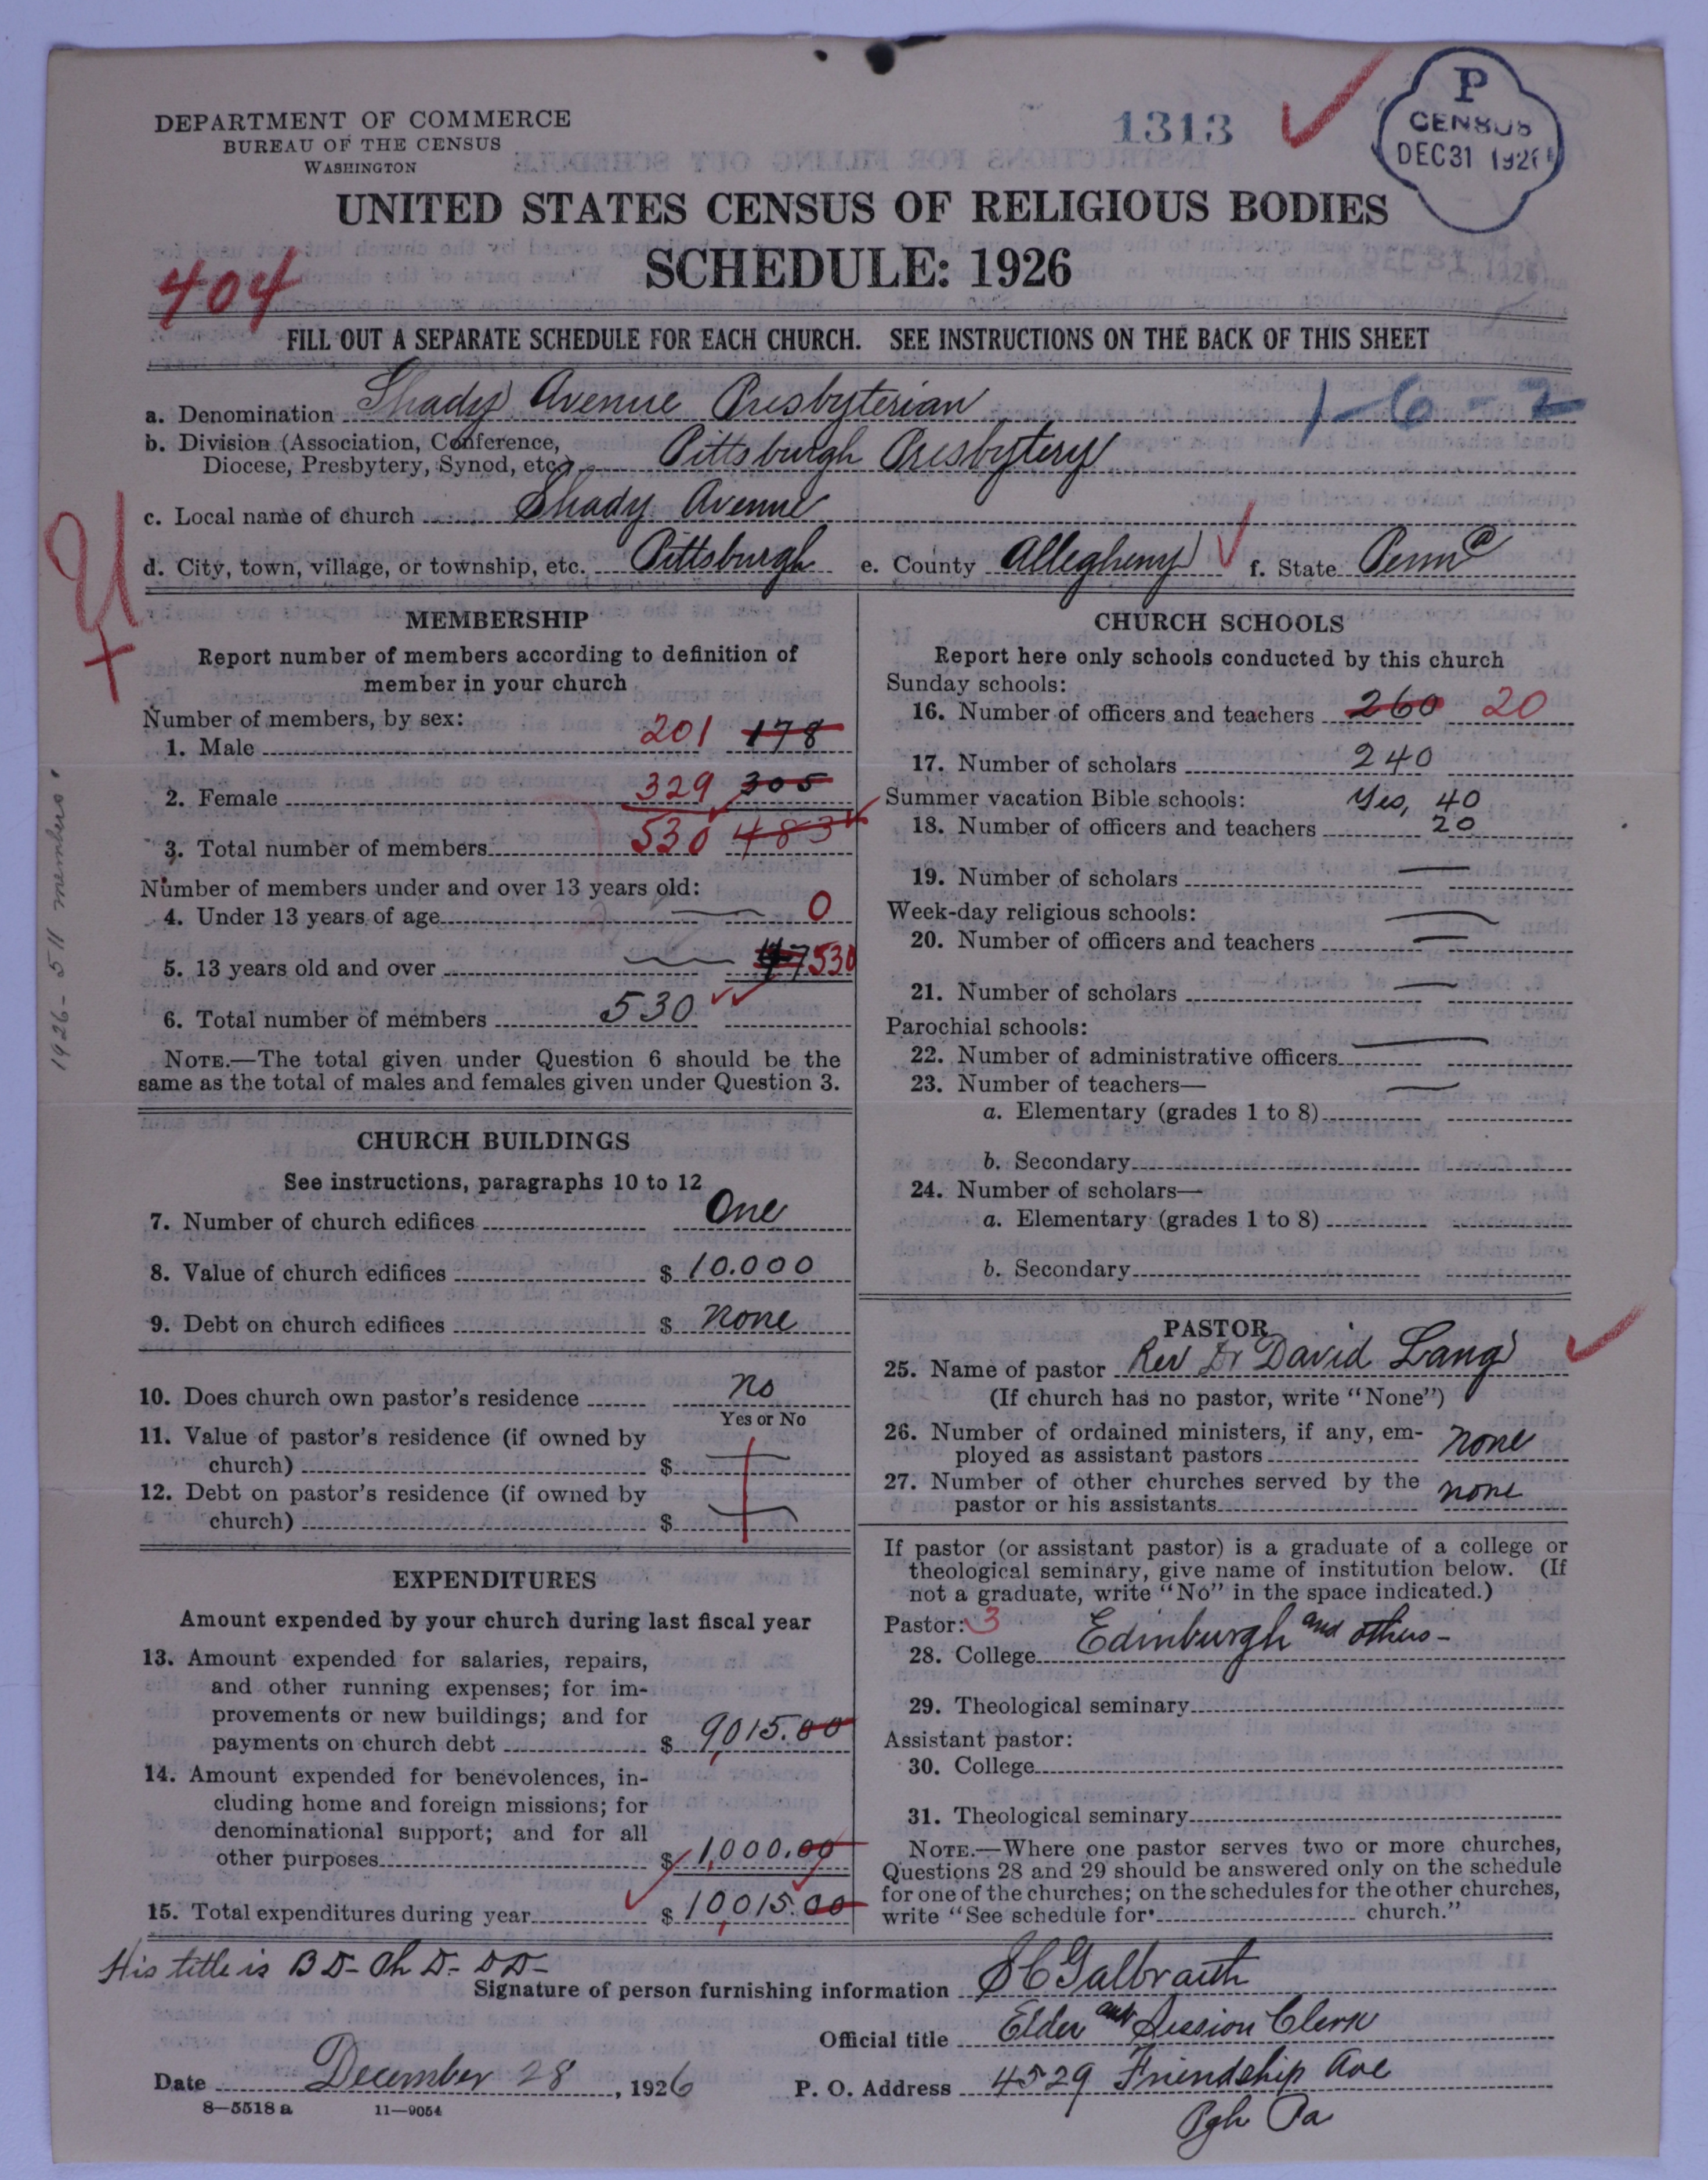 DEPARTMENT OF COMMERCE
BUREAU OF THE CENSUS
WASHINGTON
1313
P
CENSUS
DEC 31 1926
UNITED STATES CENSUS OF RELIGIOUS BODIES
SCHEDULE: 1926
404
FILL OUT A SEPARATE SCHEDULE FOR EACH CHURCH. SEE INSTRUCTIONS ON THE BACK OF THIS SHEET
a. Denomination Shady Avenue Presbyterian 1-6-2
b. Division (Association, Conference,
Diocese, Presbytery, Synod, etc.) Pittsburgh Presbytery
c. Local name of church Shady Avenue
d. City, town, village, or township, etc. Pittsburgh e. County Allegheny f. State Penna
MEMBERSHIP
Report number of members according to definition of
member in your church
Number of members, by sex:
1. Male 201 178
2. Female 329 305
3. Total number of members 530 483
Number of members under and over 13 years old:
4. Under 13 years of age 0
5. 13 years old and over 530
6. Total number of members 530
NOTE.—The total given under Question 6 should be the
same as the total of males and females given under Question 3.
1926-511 members
CHURCH BUILDINGS
See instructions, paragraphs 10 to 12
7. Number of church edifices One
8. Value of church edifices $ 10.000
9. Debt on church edifices $ none
10. Does church own pastor's residence no
Yes or No
11. Value of pastor's residence (if owned by
church) $
12. Debt on pastor's residence (if owned by
church) $
EXPENDITURES
Amount expended by your church during last fiscal year
13. Amount expended for salaries, repairs,
and other running expenses; for im-
provements or new buildings; and for
payments on church debt $ 9,015.00
14. Amount expended for benevolences, in-
cluding home and foreign missions; for
denominational support; and for all
other purposes $ 1,000.00
15. Total expenditures during year $ 10,015.00
CHURCH SCHOOLS
Report here only schools conducted by this church
Sunday schools:
16. Number of officers and teachers 260 20
17. Number of scholars 240
Summer vacation Bible schools: Yes, 40
18. Number of officers and teachers 20
19. Number of scholars
Week-day religious schools:
20. Number of officers and teachers
21. Number of scholars
Parochial schools:
22. Number of administrative officers
23. Number of teachers—
a. Elementary (grades 1 to 8)
b. Secondary
24. Number of scholars—
a. Elementary (grades 1 to 8)
b. Secondary
PASTOR
25. Name of pastor Rev Dr David Lang
(If church has no pastor, write "None")
26. Number of ordained ministers, if any, em-
ployed as assistant pastors none
27. Number of other churches served by the
pastor or his assistants none
If pastor (or assistant pastor) is a graduate of a college or
theological seminary, give name of institution below. (If
not a graduate, write "No" in the space indicated.)
Pastor: 3
28. College Edinburgh and others-
29. Theological seminary
Assistant pastor:
30. College
31. Theological seminary
NOTE.—Where one pastor serves two or more churches,
Questions 28 and 29 should be answered only on the schedule
for one of the churches; on the schedules for the other churches,
write "See schedule for church."
His title is B D- Ph D- D D-
Signature of person furnishing information S C Galbraith
Official title Elder and Session Clerk
Date December 28, 1926 P. O. Address 4529 Friendship Ave
Pgh Pa
8—5518 a 11—9054